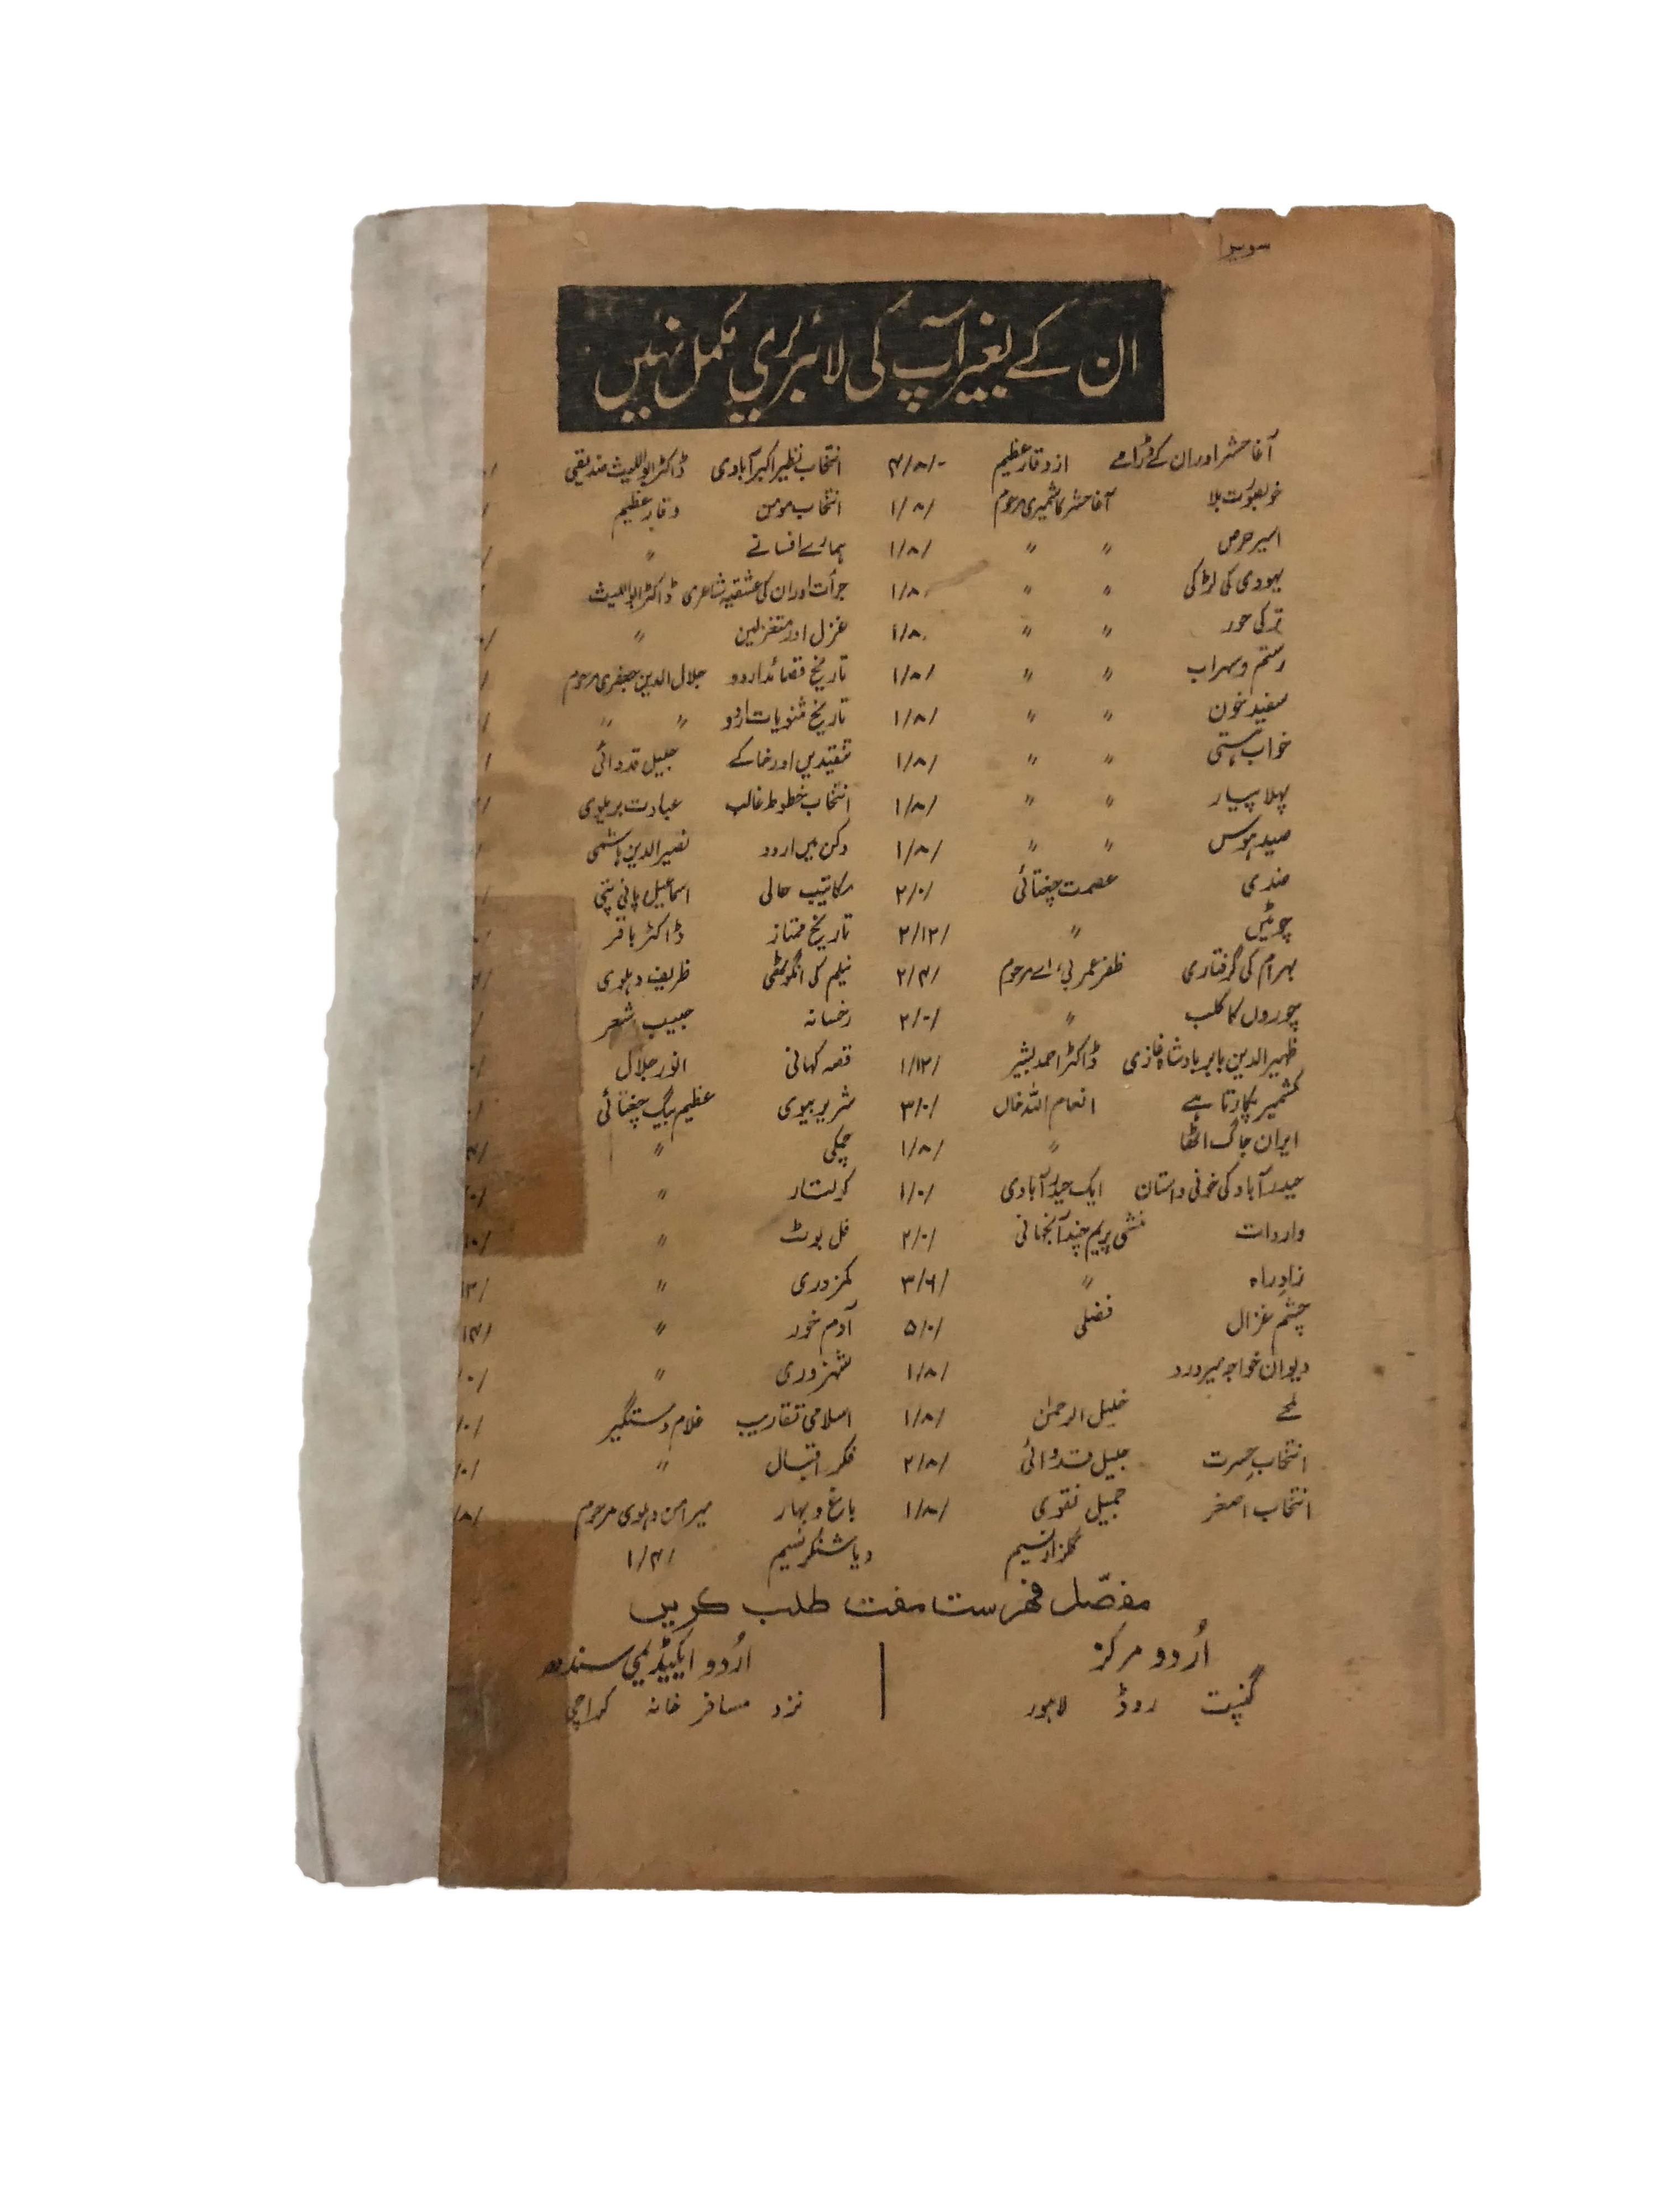 سویرا
ان کے بغیر آپ کی لائبریری مکمل نہیں
آغا حشر اور ان کے ڈرامے از وقار عظیم ۴/۸/- انتخاب نظیر اکبر آبادی ڈاکٹر ابواللیث صدیقی
خوبصورت بلا آغا حشر کاشمیری مرحوم ۱/۸/ انتخاب مومن وقار عظیم
اسیر حرص " " ۱/۸/ ہمارے افسانے "
یہودی کی لڑکی " " ۱/۸/ جرأت اور ان کی عشقیہ شاعری ڈاکٹر ابواللیث
ترکی حور " " ۱/۸۰ غزل اور متغزلین "
رستم و سہراب " " ۱/۸/ تاریخ قصائد اردو جلال الدین جعفری مرحوم
سفید خون " " ۱/۸/ تاریخ مثنویات اردو " "
خواب ہستی " " ۱/۸/ تنقیدیں اور خاکے جلیل قدوائی
پہلا پیار " " ۱/۸/ انتخاب خطوط غالب عبادت بریلوی
صید ہوس " " ۱/۸/ دکن میں اردو نصیر الدین ہاشمی
ضدی عصمت چغتائی ۲/۰/ مکاتیب حالی اسماعیل پانی پتی
چوٹیں " ۲/۱۲/ تاریخ ممتاز ڈاکٹر باقر
بہرام کی گرفتاری ظفر عمر بی اے مرحوم ۲/۴/ نیلم کی انگوٹھی ظریف دہلوی
چوروں کا کلب " ۲/۰/ رخسانہ حبیب اشعر
ظہیر الدین بابر بادشاہ غازی ڈاکٹر احمد بشیر ۱/۱۲/ قصہ کہانی انور جلال
کشمیر پکارتا ہے انعام اللہ خاں ۳/۰/ شریر بیوی عظیم بیگ چغتائی
ایران جاگ اٹھا " ۱/۸/ چمکی "
حیدر آباد کی خونی داستان ایک حیدر آبادی ۱/۰/ کولتار "
واردات منشی پریم چند آنجہانی ۲/۰/ فل بوٹ "
زاد راہ " ۳/۶/ کمزوری "
چشم غزال فضلی ۵/۰/ آدم خور "
دیوان خواجہ میر درد ۱/۸/ شہزوری "
لمحے خلیل الرحمٰن ۱/۸/ اسلامی تقاریب غلام دستگیر
انتخاب حسرت جلیل قدوائی ۲/۸/ فکر اقبال "
انتخاب اصغر جمیل نقوی ۱/۸/ باغ و بہار میر امن دہلوی مرحوم
گلزار نسیم دیا شنکر نسیم ۱/۴/
مفصّل فہرست مفت طلب کریں
اُردو مرکز
گنپت روڈ لاہور
اُردو اکیڈیمی سندھ
نزد مسافر خانہ کراچی